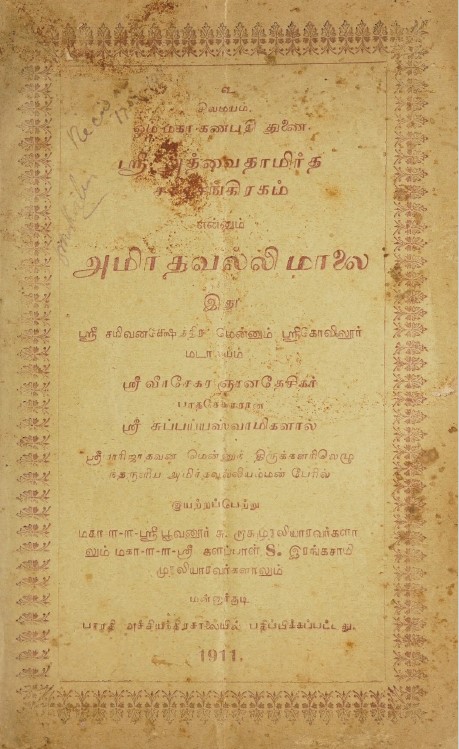 உ
சிவமயம்.
ஓம் மகா கணபதி துணை.
ஸ்ரீ அத்வைதாமிர்த
சங்கிரகம்
என்னும்
அமிர்தவல்லி மாலை
இது
ஸ்ரீ சமிவனக்ஷேத்திர மென்னும் ஸ்ரீகோவிலூர்
ஸ்ரீ வீரசேகர ஞானதேசிகர்
ஸ்ரீ சுப்பய்யஸ்வாமிகளால்
ஸ்ரீ பாரிஜாதவன மென்னும் திருக்களரிலெழு
ந்தருளிய அமிர்தவல்லியம்மன் பேரில்
இயற்றப்பெற்று
மகா-ள-ள-ஸ்ரீ பூவனூர் சு. முதலியாரவர்களா
லும் மகா-ள-ள-ஸ்ரீ களப்பாள் S. இரங்கசாமி
முதலியாரவர்களாலும்
மன்னார்குடி
பாரதி அச்சியந்திரசாலையில் பதிப்பிக்கப்பட்டது.
1911.